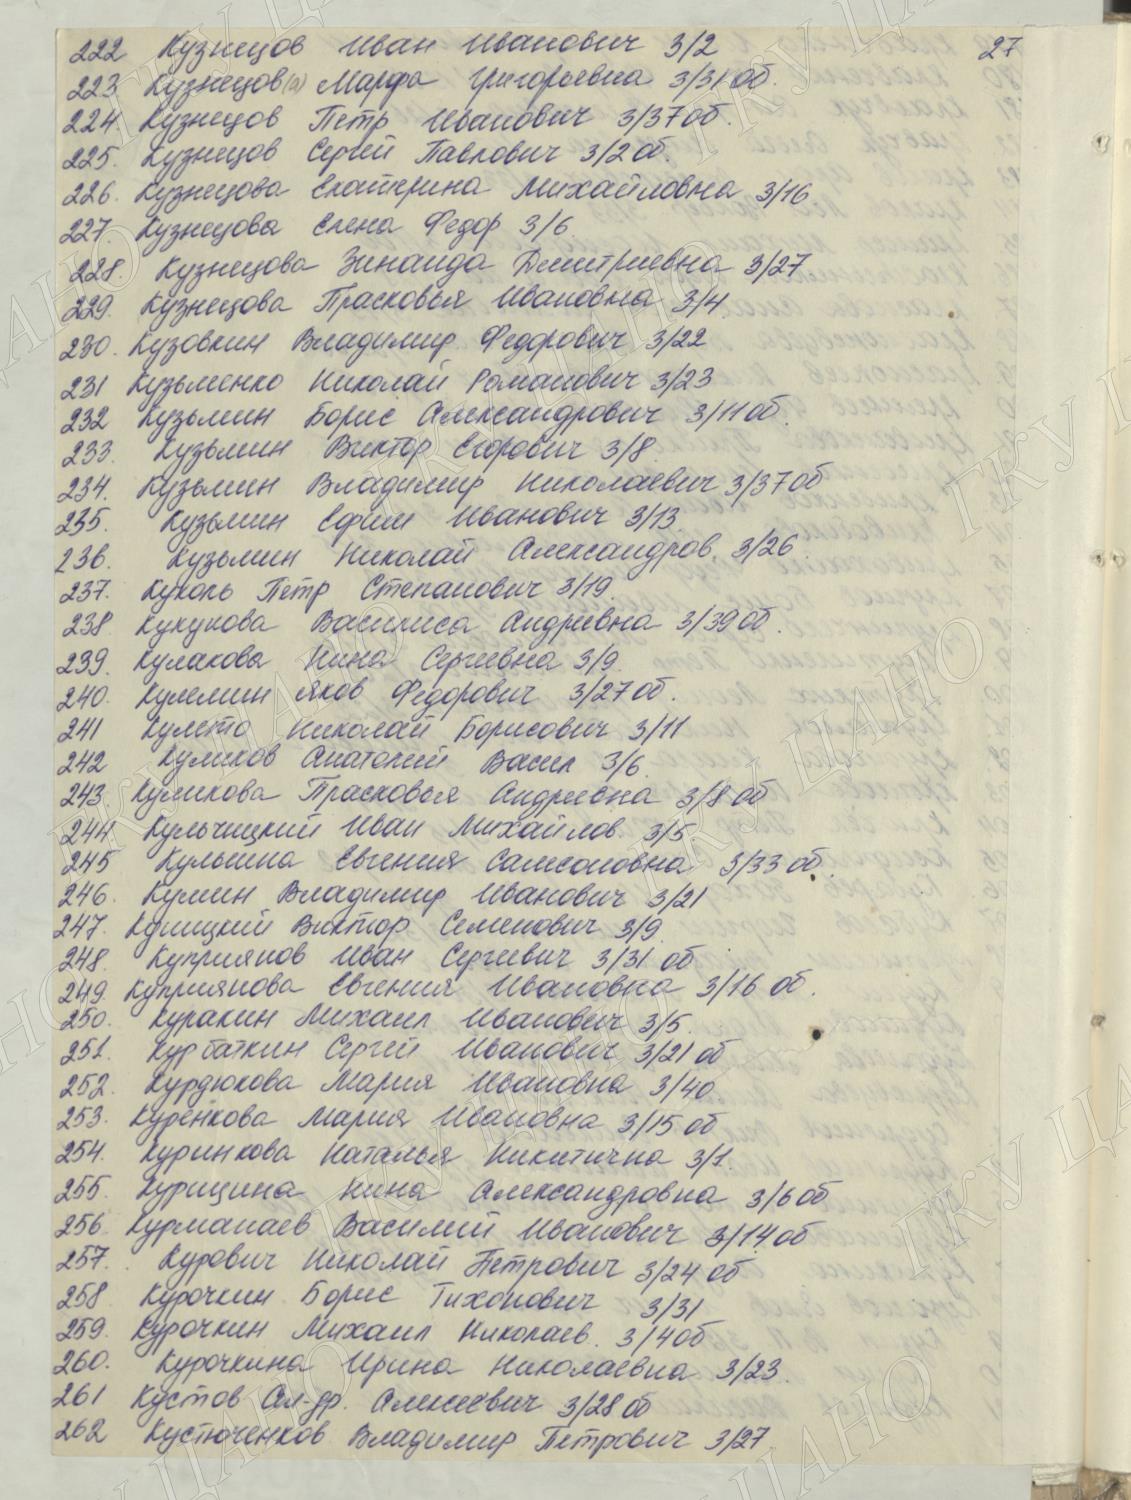 222 Кузнецов Иван Иванович 3/2 27
223 Кузнецов(а) Марфа Григорьевна 3/31 об.
224 Кузнецов Петр Иванович 3/37 об.
225. Кузнецов Сергей Павлович 3/2 об.
226. Кузнецова Екатерина Михайловна 3/16
227 Кузнецова Елена Федор 3/6
228. Кузнецова Зинаида Дмитриевна 3/27
229. Кузнецова Прасковья Ивановна 3/4
230. Кузовкин Владимир Федорович 3/22
231 Кузьменко Николай Романович 3/23
232 Кузьмин Борис Александрович 3/11 об.
233. Кузьмин Виктор Егорович 3/8
234. Кузьмин Владимир Николаевич 3/37 об
235. Кузьмин Ефим Иванович 3/13
236. Кузьмин Николай Александров. 3/26
237. Куколь Петр Степанович 3/19.
238 Кукукова Василиса Андреевна 3/39 об.
239. Кулакова Нина Сергеевна 3/9
240. Кулемин Яков Федорович 3/27 об.
241 Николай Борисович 3/11
242 Куликов Анатолий Васил 3/6
243. Куликова Прасковья Андреевна 3/8 об
244. Кульчицкий Иван Михайлов. 3/5
245 Евгения Самсоновна 3/33 об.
246. Кумин Владимир Иванович 3/21
247. Куницкий Виктор Семенович 3/9
248. Куприянов Иван Сергеевич 3/31 об
249. Куприянова Евгения Ивановна 3/16 об.
250. Куракин Михаил Иванович 3/5.
251. Курбаткин Сергей Иванович 3/21 об
252. Курдюкова Мария Ивановна 3/40.
253. Куренкова Мария Ивановна 3/15 об
254. Куринкова Наталья Никитична 3/1.
255. Курицина Нина Александровна 3/6 об
256. Курманаев Василий Иванович 3/14 об
257. Курович Николай Петрович 3/24 об
258 Курочкин Борис Тихонович 3/31
259. Курочкин Михаил Николаев. 3/4 об
260. Курочкина Ирина Николаевна 3/23.
261 Кустов Ал-др. Алексеевич 3/28 об
262 Кустюченков Владимир Петрович 3/27